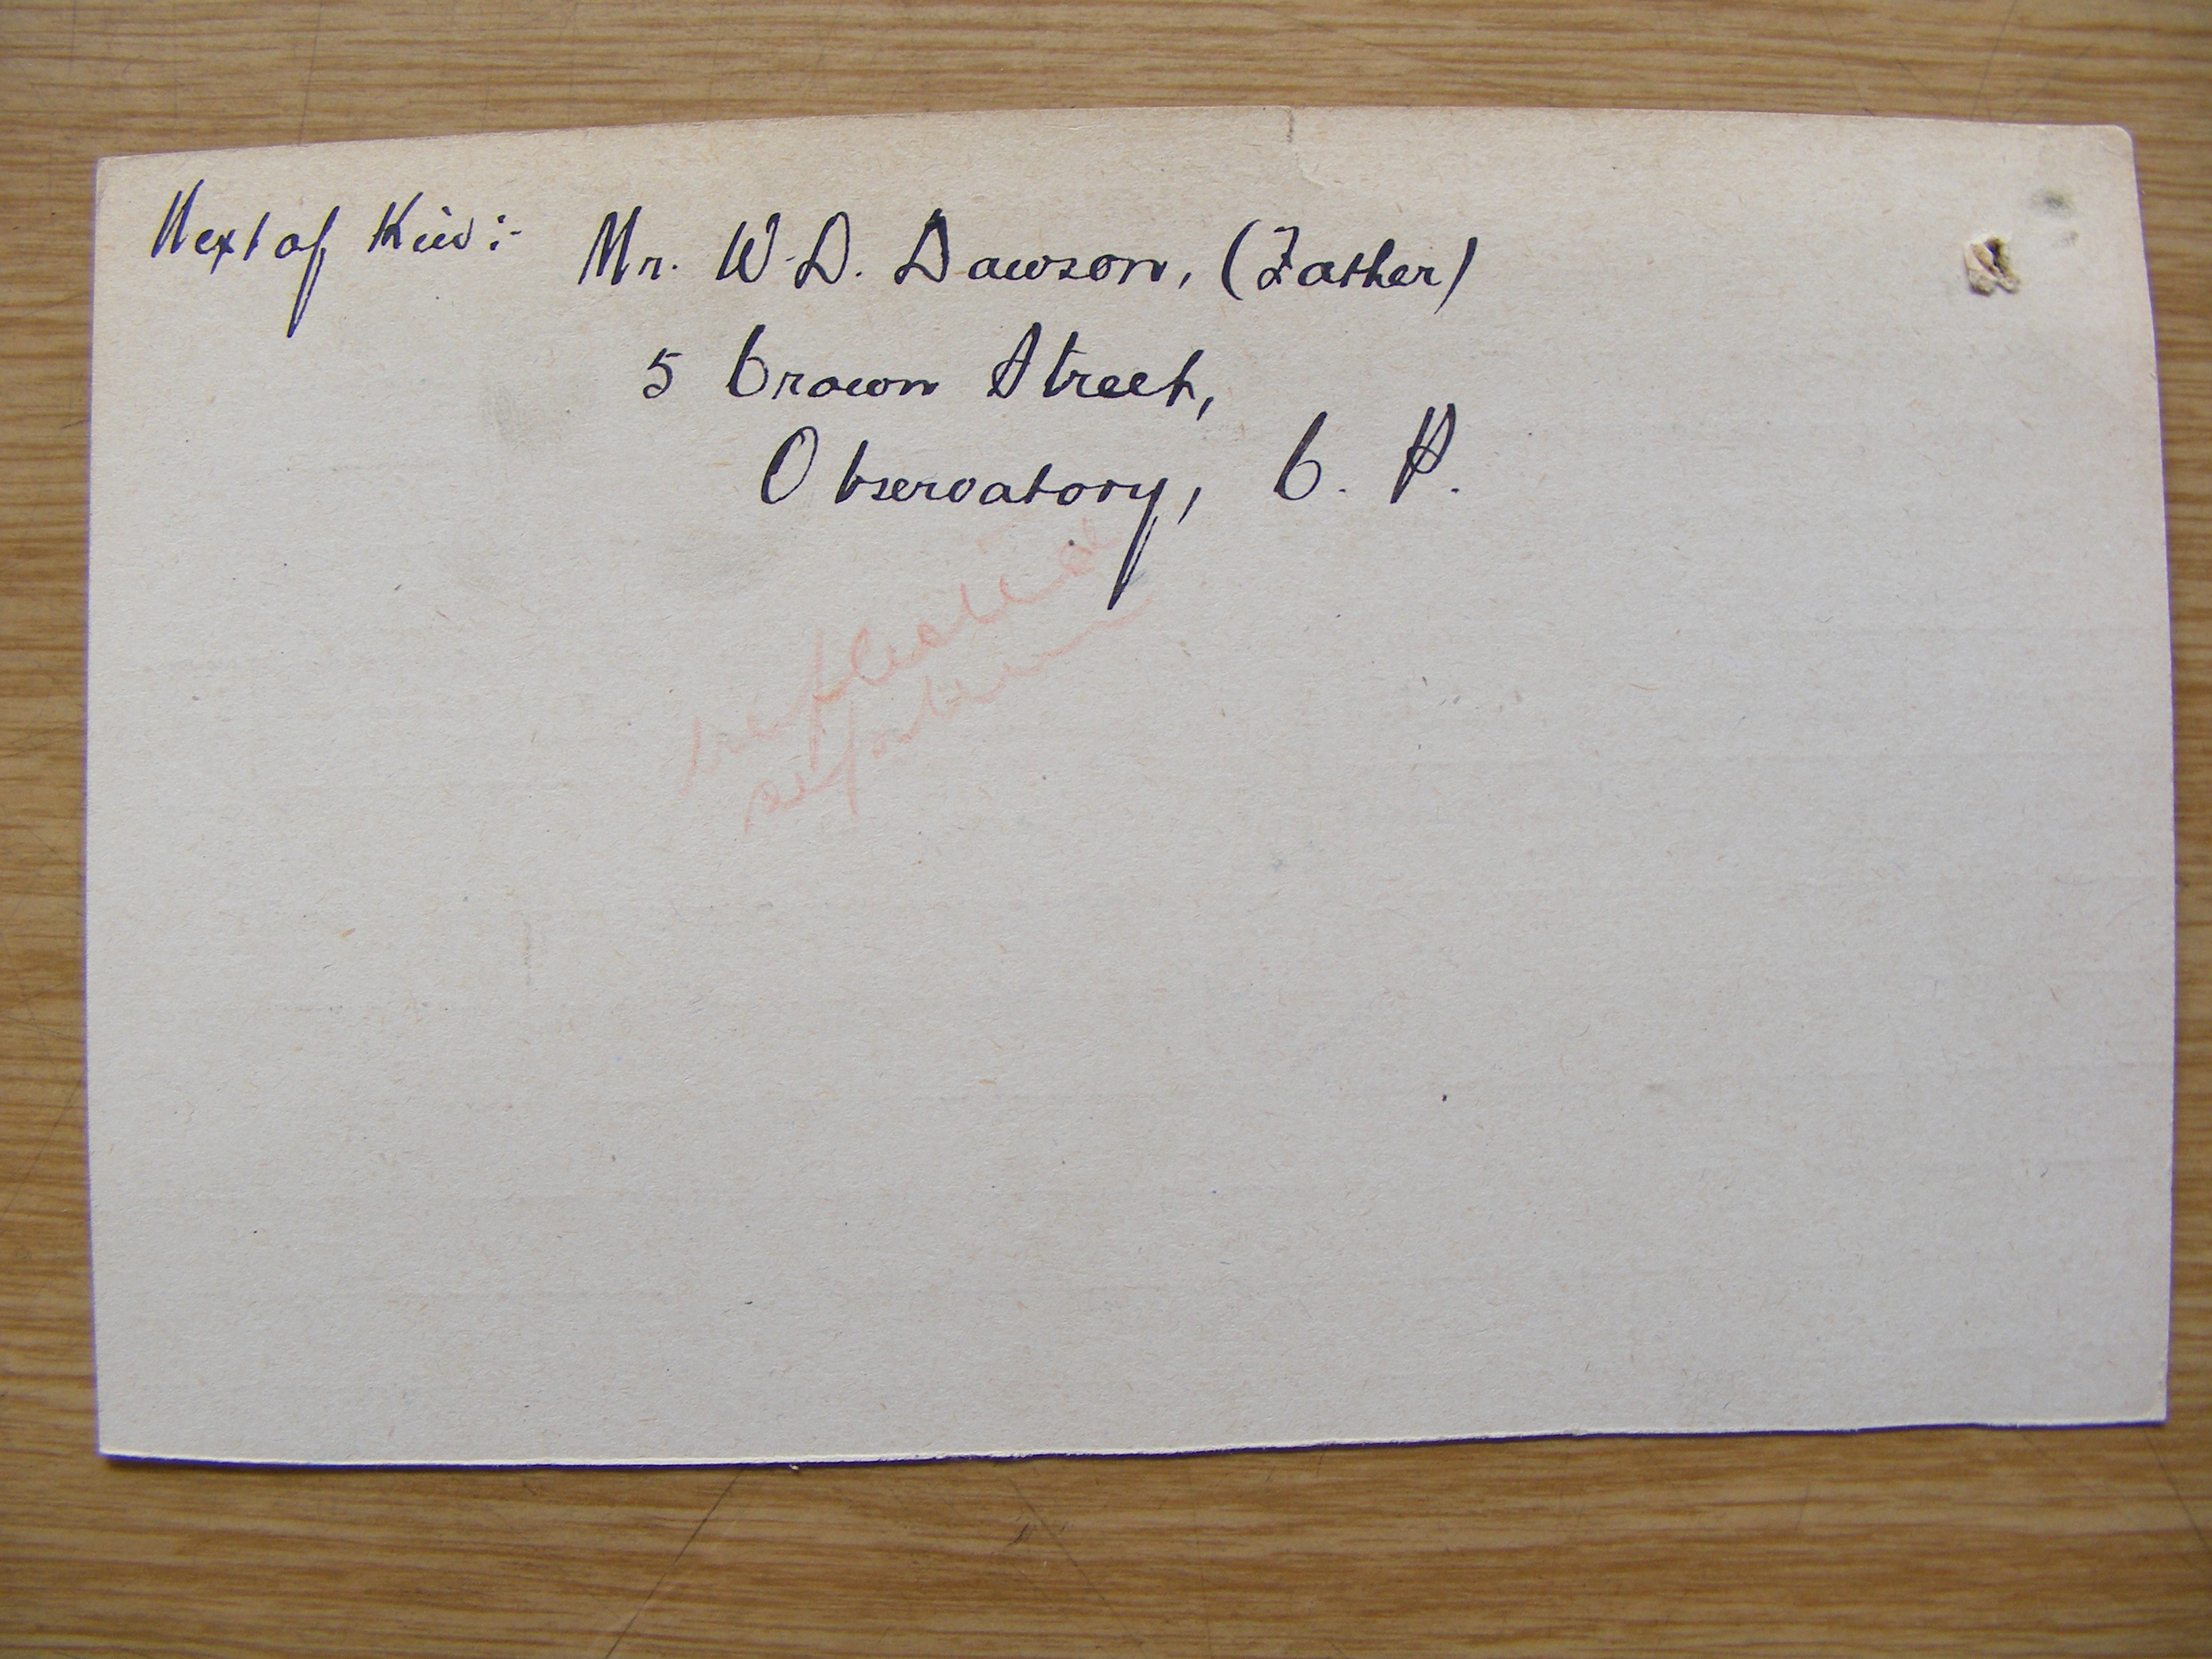 Next of Kin:- Mr. W.D. Dawson, (Father)
5 Crown Street,
Observatory, C. P.